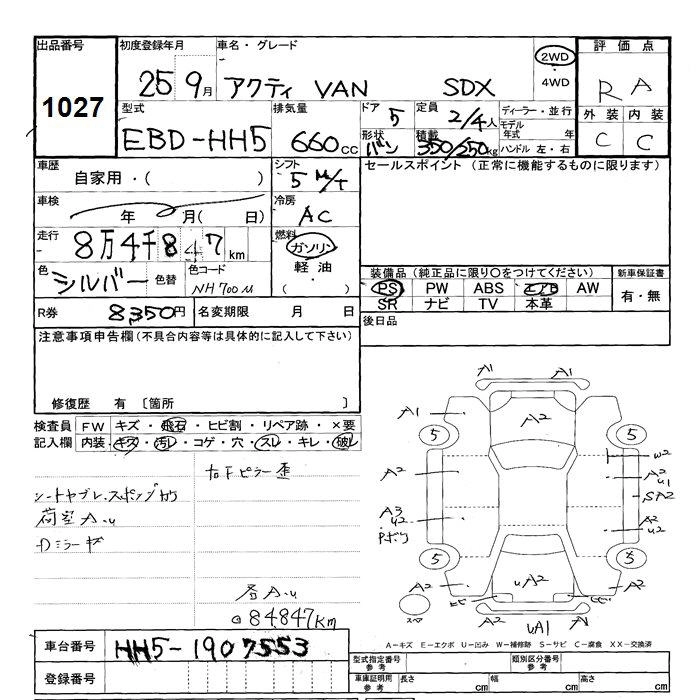 出品番号 初度登録年月 車名・グレード 評価点
1027 25 9月 アクティ VAN SDX 2WD・4WD R A
型式 排気量 ドア 5 定員 2/4人 ディーラー・並行 外装 内装
EBD-HH5 660cc 形状 バン 積載 350/250kg モデル年式 年 ハンドル 左・右 C C
車歴 自家用・( ) シフト 5 M/T セールスポイント(正常に機能するものに限ります)
車検 年 月( 日) 冷房 AC
走行 8万4千847km 燃料 ガソリン・軽油・( )
色 シルバー 色替 色コード NH700M 装備品(純正品に限り○をつけてください) 新車保証書
PS PW ABS エアB AW 有・無
R券 8350円 名変期限 月 日 SR ナビ TV 本革
後日品
注意事項申告欄(不具合内容等は具体的に記入して下さい)
修復歴 有 〔箇所 〕
検査員記入欄 FW キズ・飛石・ヒビ割・リペア跡・×要
内装 キズ・汚レ・コゲ・穴・スレ・キレ・破レ
右下ピラー歪
シートヤブレ、スポンジカケ
荷室A.u
Dミラーキズ
各A.u
84,847km
A1 A1
A1 A2
5 5
W2
A2 A2 U1
SA2
A3 U2 A2 U2
Pボウ
5 5
A2 UA2 A2
A2 A1
スペア UA1
A-キズ E-エクボ U-凹み W-補修跡 S-サビ C-腐食 XX-交換済
車台番号 HH5-1907553
登録番号
型式指定番号 参考 類別区分番号 参考
車庫証明用 参考 長さ cm 幅 cm 高さ cm